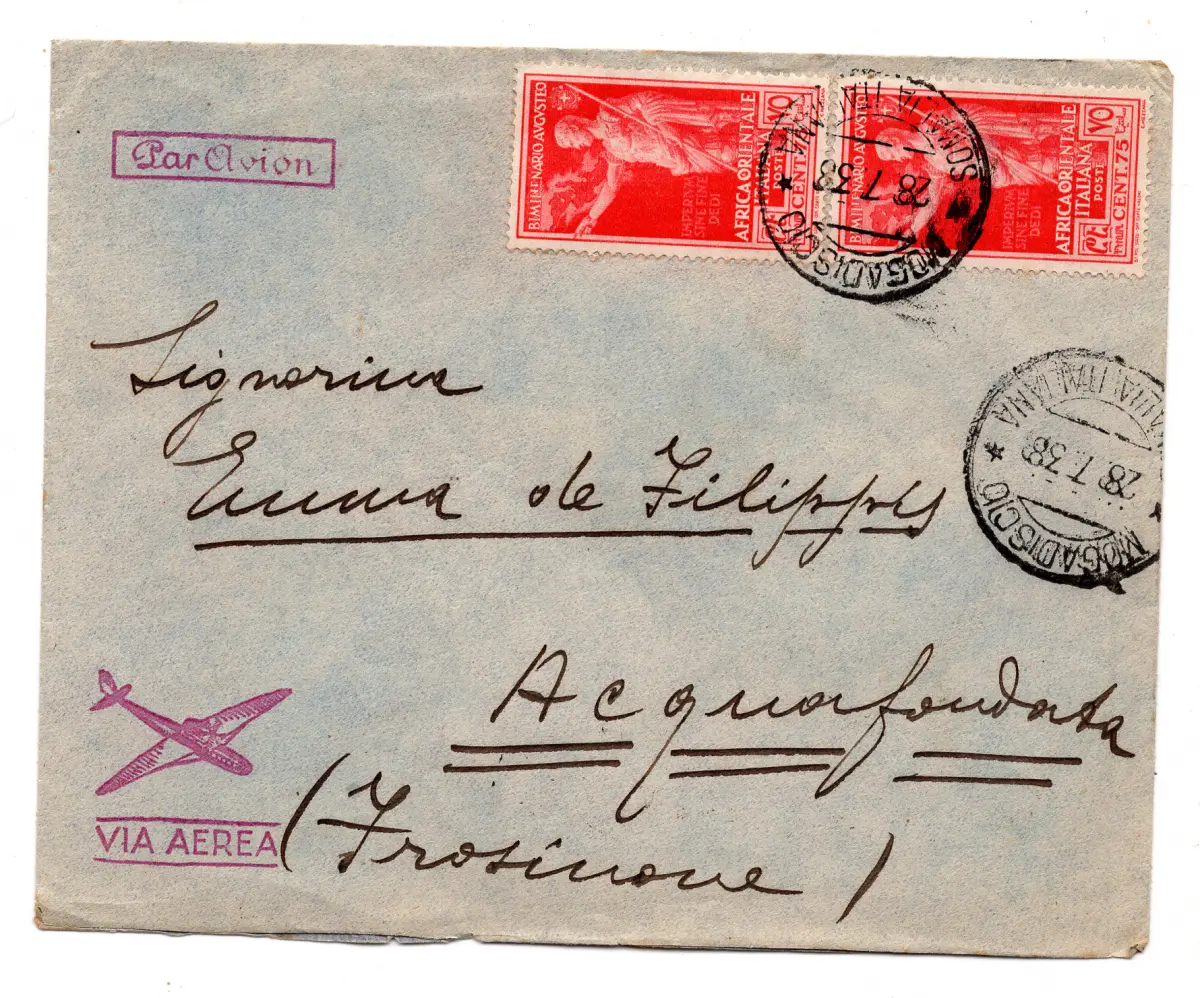 Par Avion
BIMILLENARIO AVGVSTEO
IMPERIVM
SINE FINE
DEDI
AFRICA ORIENTALE
ITALIANA
POSTE
CENT.75
BIMILLENARIO AVGVSTEO
IMPERIVM
SINE FINE
DEDI
AFRICA ORIENTALE
ITALIANA
POSTE
CENT.75
MOGADISCIO
28.7.38
SOMALIA ITALIANA
Signorina
Emma de Filippis
MOGADISCIO
28.7.38
ITALIANA
Acquafondata
(Frosinone)
VIA AEREA